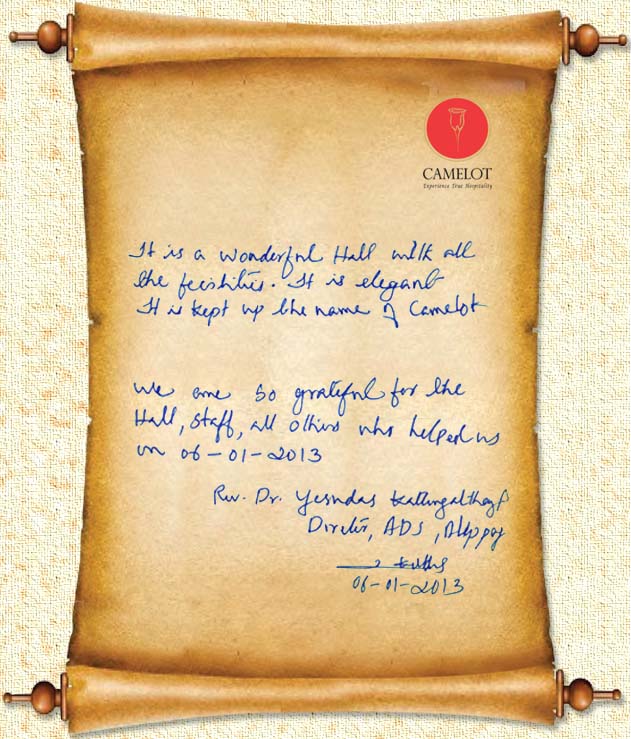 CAMELOT
Experience True Hospitality
It is a wonderful Hall with all
the facilities. It is elegant
It is kept up the name of Camelot
We are so grateful for the
Hall, Staff, all others who helped us
on 06-01-2013
Rev. Dr. Yesudas
Director, ADS, Alleppey
06-01-2013